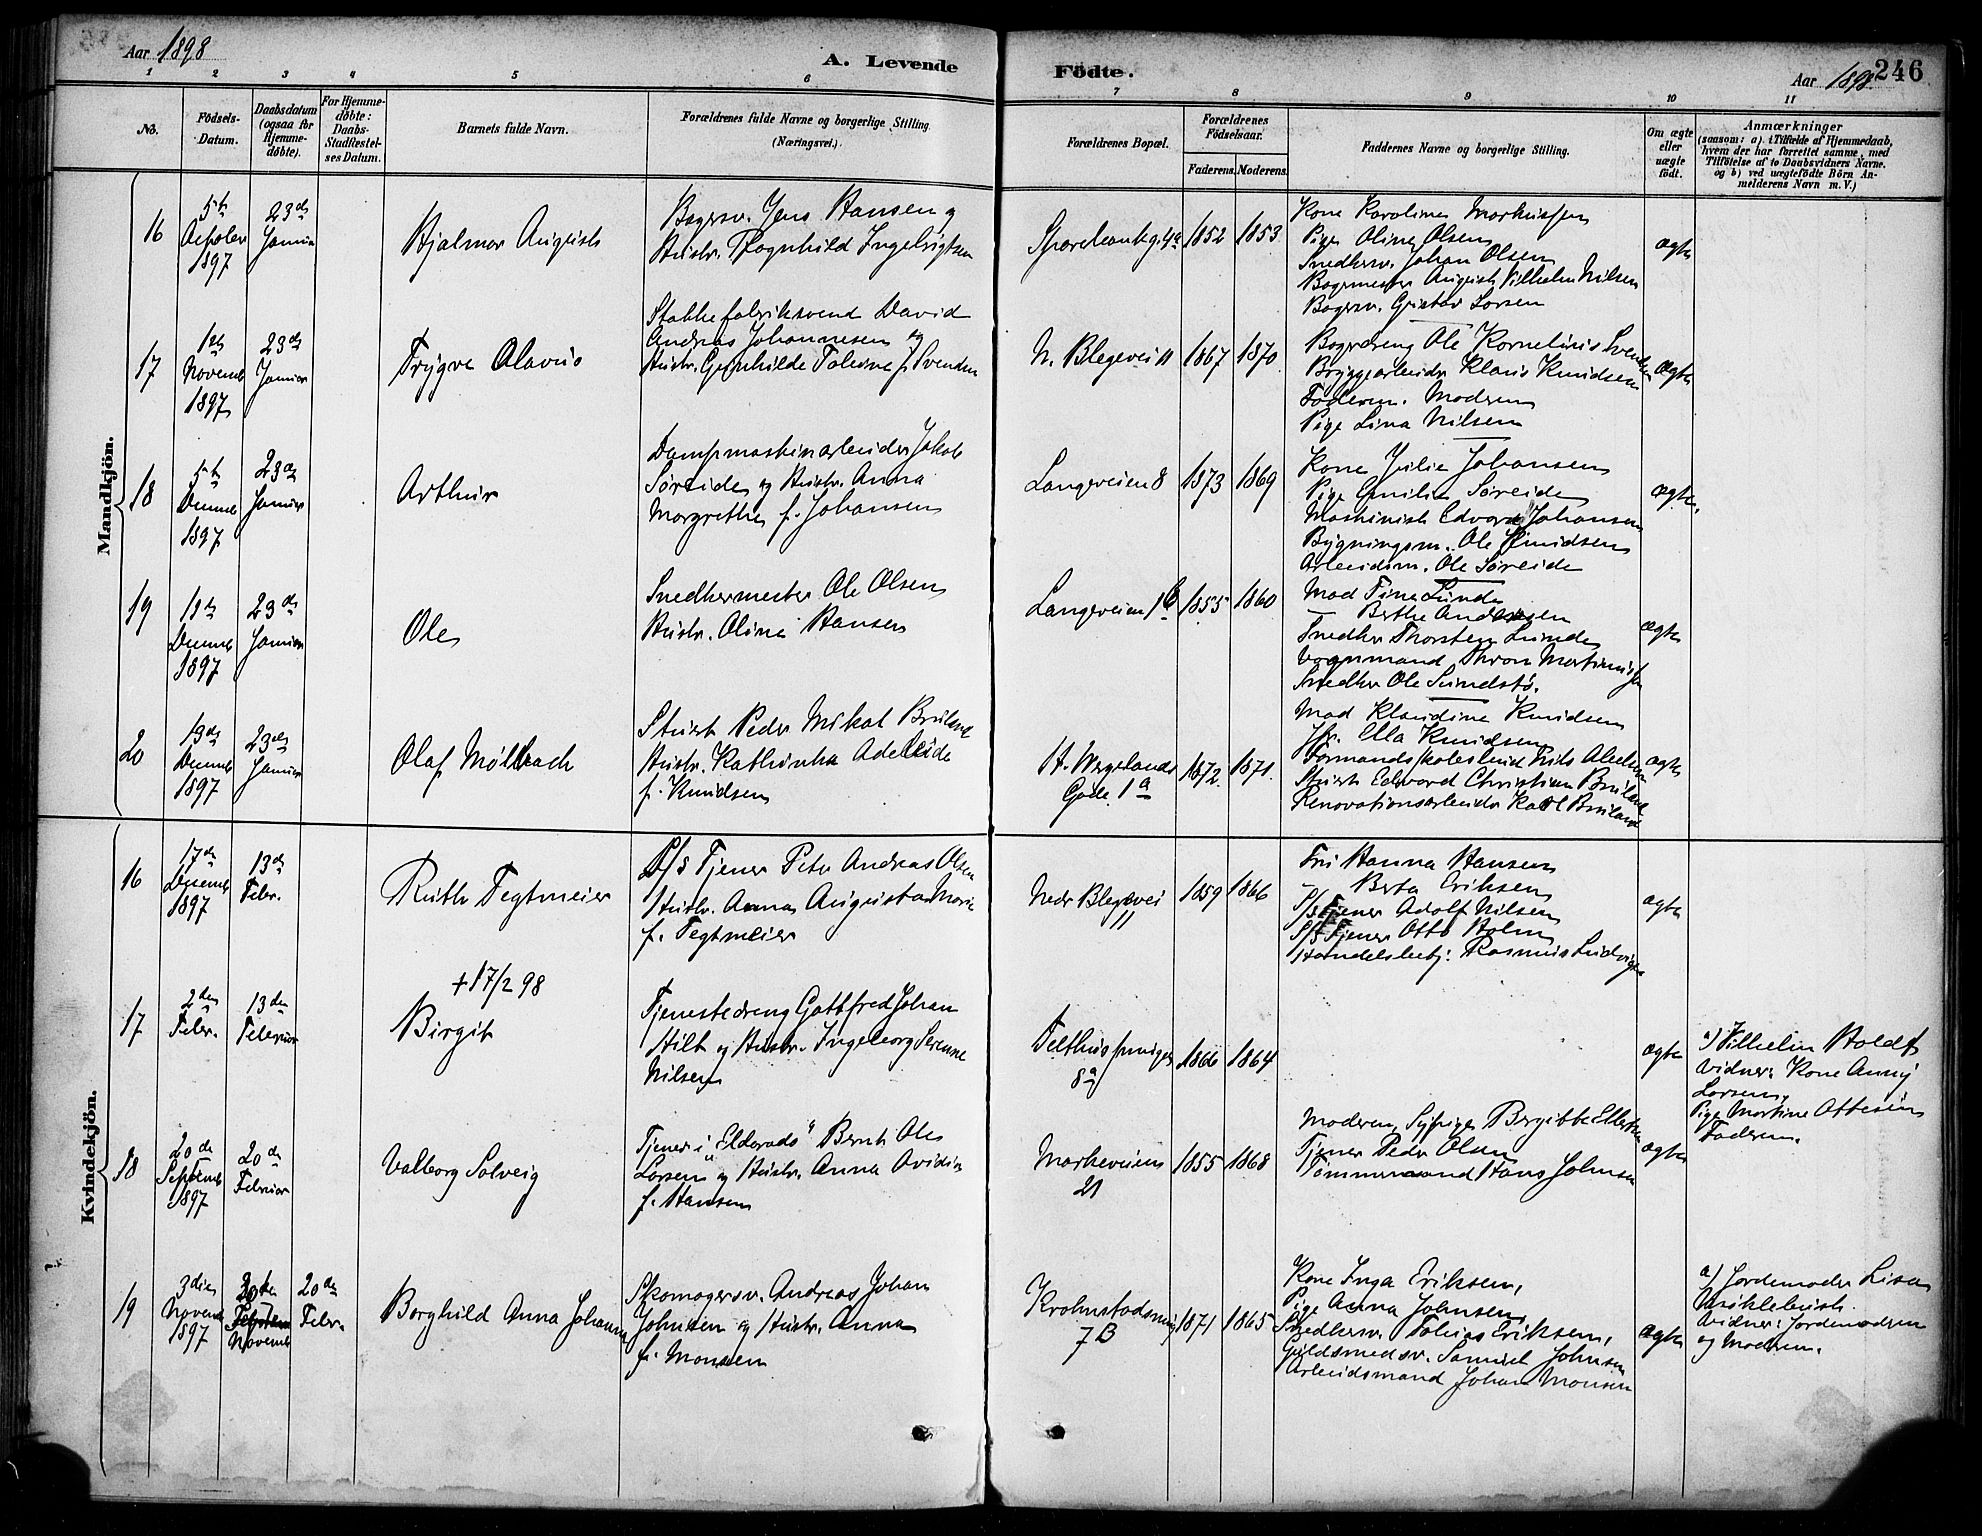 Aar 1898
A. Levende
Födte.
Aar 1898
246
1 2 3 4 5 6 7 8 9 10 11
No.
Födsels-
Datum.
Daabsdatum
(ogsaa for
Hjemme-
döbte).
For Hjemme-
döbte:
Daabs-
Stadfestel-
ses Datum.
Barnets fulde Navn.
Forældrenes fulde Navne og borgerlige Stilling
(Næringsvei.)
Forældrenes Bopæl.
Forældrenes
Födselsaar.
Faderens.
Moderens.
Faddernes Navne og borgerlige Stilling.
Om ægte
eller
uægte
födt.
Anmærkninger
(saasom: a) i Tilfælde af Hjemmedaab,
hvem der har forrettet samme, med
Tilföielse af to Daabsvidners Navne.
og b) ved uægtefödte Börn An-
melderens Navn m. V.)
Mandkjön.
16
5te
Oktober
1897
23de
Januar
Hjalmar August
Bagersv. Jens Hansen og
Hustr. Ragnhild Ingebrigtsen
1852
1853
Kone Karoline Markussen
Pige Oline Olsen
Snedkersv. Johan Olsen
Bagermester August Vilhelm Nilsen
Bagersv. Gustav Larsen
ægte
17
1ste
Novemb
1897
23de
Januar
Trygve Olavus
David
Andreas Johannesen og
Hustr. f. Svendsen
N. Blegevei 11
1867
1870
Bagerdreng Ole Kornelius Svendsen
Bryggearbeider Klaus Knudsen
Faderen. Moderen
Pige Lina Nilsen
ægte
18
5te
Decemb
1897
23de
Januar
Arthur
Dampmaskinarbeider Jakob
Søreide og Hustr. Anna
Margrethe f. Johansen
Langeveien 8
1873
1869
Kone Julie Johansen
Pige Emilie Søreide
Maskinist Edvard Johansen
Bygningsm. Ole Knudsen
Arbeidsm. Ole Søreide
ægte.
19
Decemb
1897
23de
Januar
Ole
Snedkermester Ole Olsen
Hustr. Oline Hansen
Langeveien 1b
1855
1860
Mad Tine Lunde
— Berthe Andersen
Snedker Thorsten Lunde
Vognmand Martinussen
Snedker Ole Sundstø.
ægte
20
19de
Decemb
1897
23de
Januar
Olaf Møllbach
Peder Mikal
Hustr. Kathinka Adeleide
f. Knudsen
H. Wergelands
Gade 1a
1872.
1871.
Mad Klaudine Knudsen
Jfr. Ella Knudsen
Edvard Christian
Renovationsarbeider Karl
ægte
Kvindekjön.
16
17de
Decemb
1897
13de
Febr.
Ruth Tegtmeier
D/S Tjener Peter Andreas Olsen
Hustr. Anna Augusta Marie
f. Tegtmeier
Nedr Blegevei
11
1859
1866
Fru Hanna Hansen
— Berta Eriksen
D/S Tjener Adolf Nilsen
D/S Tjener Otto Holm
Handelsbetj: Rasmus Ludvigsen
ægte
+17/2 98
17
2den
Febr.
13de
Februar
Birgit
Tjenestedreng Gottfred Johan
Hilt og Hustr. Ingeborg Serine
Nilsen
8a
1866
1864
ægte
a) Vilhelm Holdt
vidner: Kone Anny
Larsen,
Pige Martine Ottesen
Faderen.
18
20de
Septemb
1897
20de
Februar
Valborg Solveig
Tjener i "Eldorado" Bernt Ole
Larsen og Hustr. Anna Avidia
f. Hansen
Markeveien
21
1855
1868
Moderen, Sypige Birgitte Ellertsen
Tjener Peder Olsen
Tømmermand Hans Johnsen
ægte
19
3die
Novemb
1897
20de
Novemb
20de
Febr.
Borghild Anna Johanna
Skomagersv. Andreas Johan
Johnsen og Hustr. Anna
f. Monsen
Krohnstadsmug
7 B
1871
1865
Kone Inga Eriksen,
Pige Anna Johnsen,
Snedkersv. Tobias Eriksen,
Guldsmedsv. Samuel Johnsen
Arbeidsmand Johan Monsen
ægte
a) Jordemoder Lisa
Myklebust.
Vidner: Jordemoderen
og Moderen.